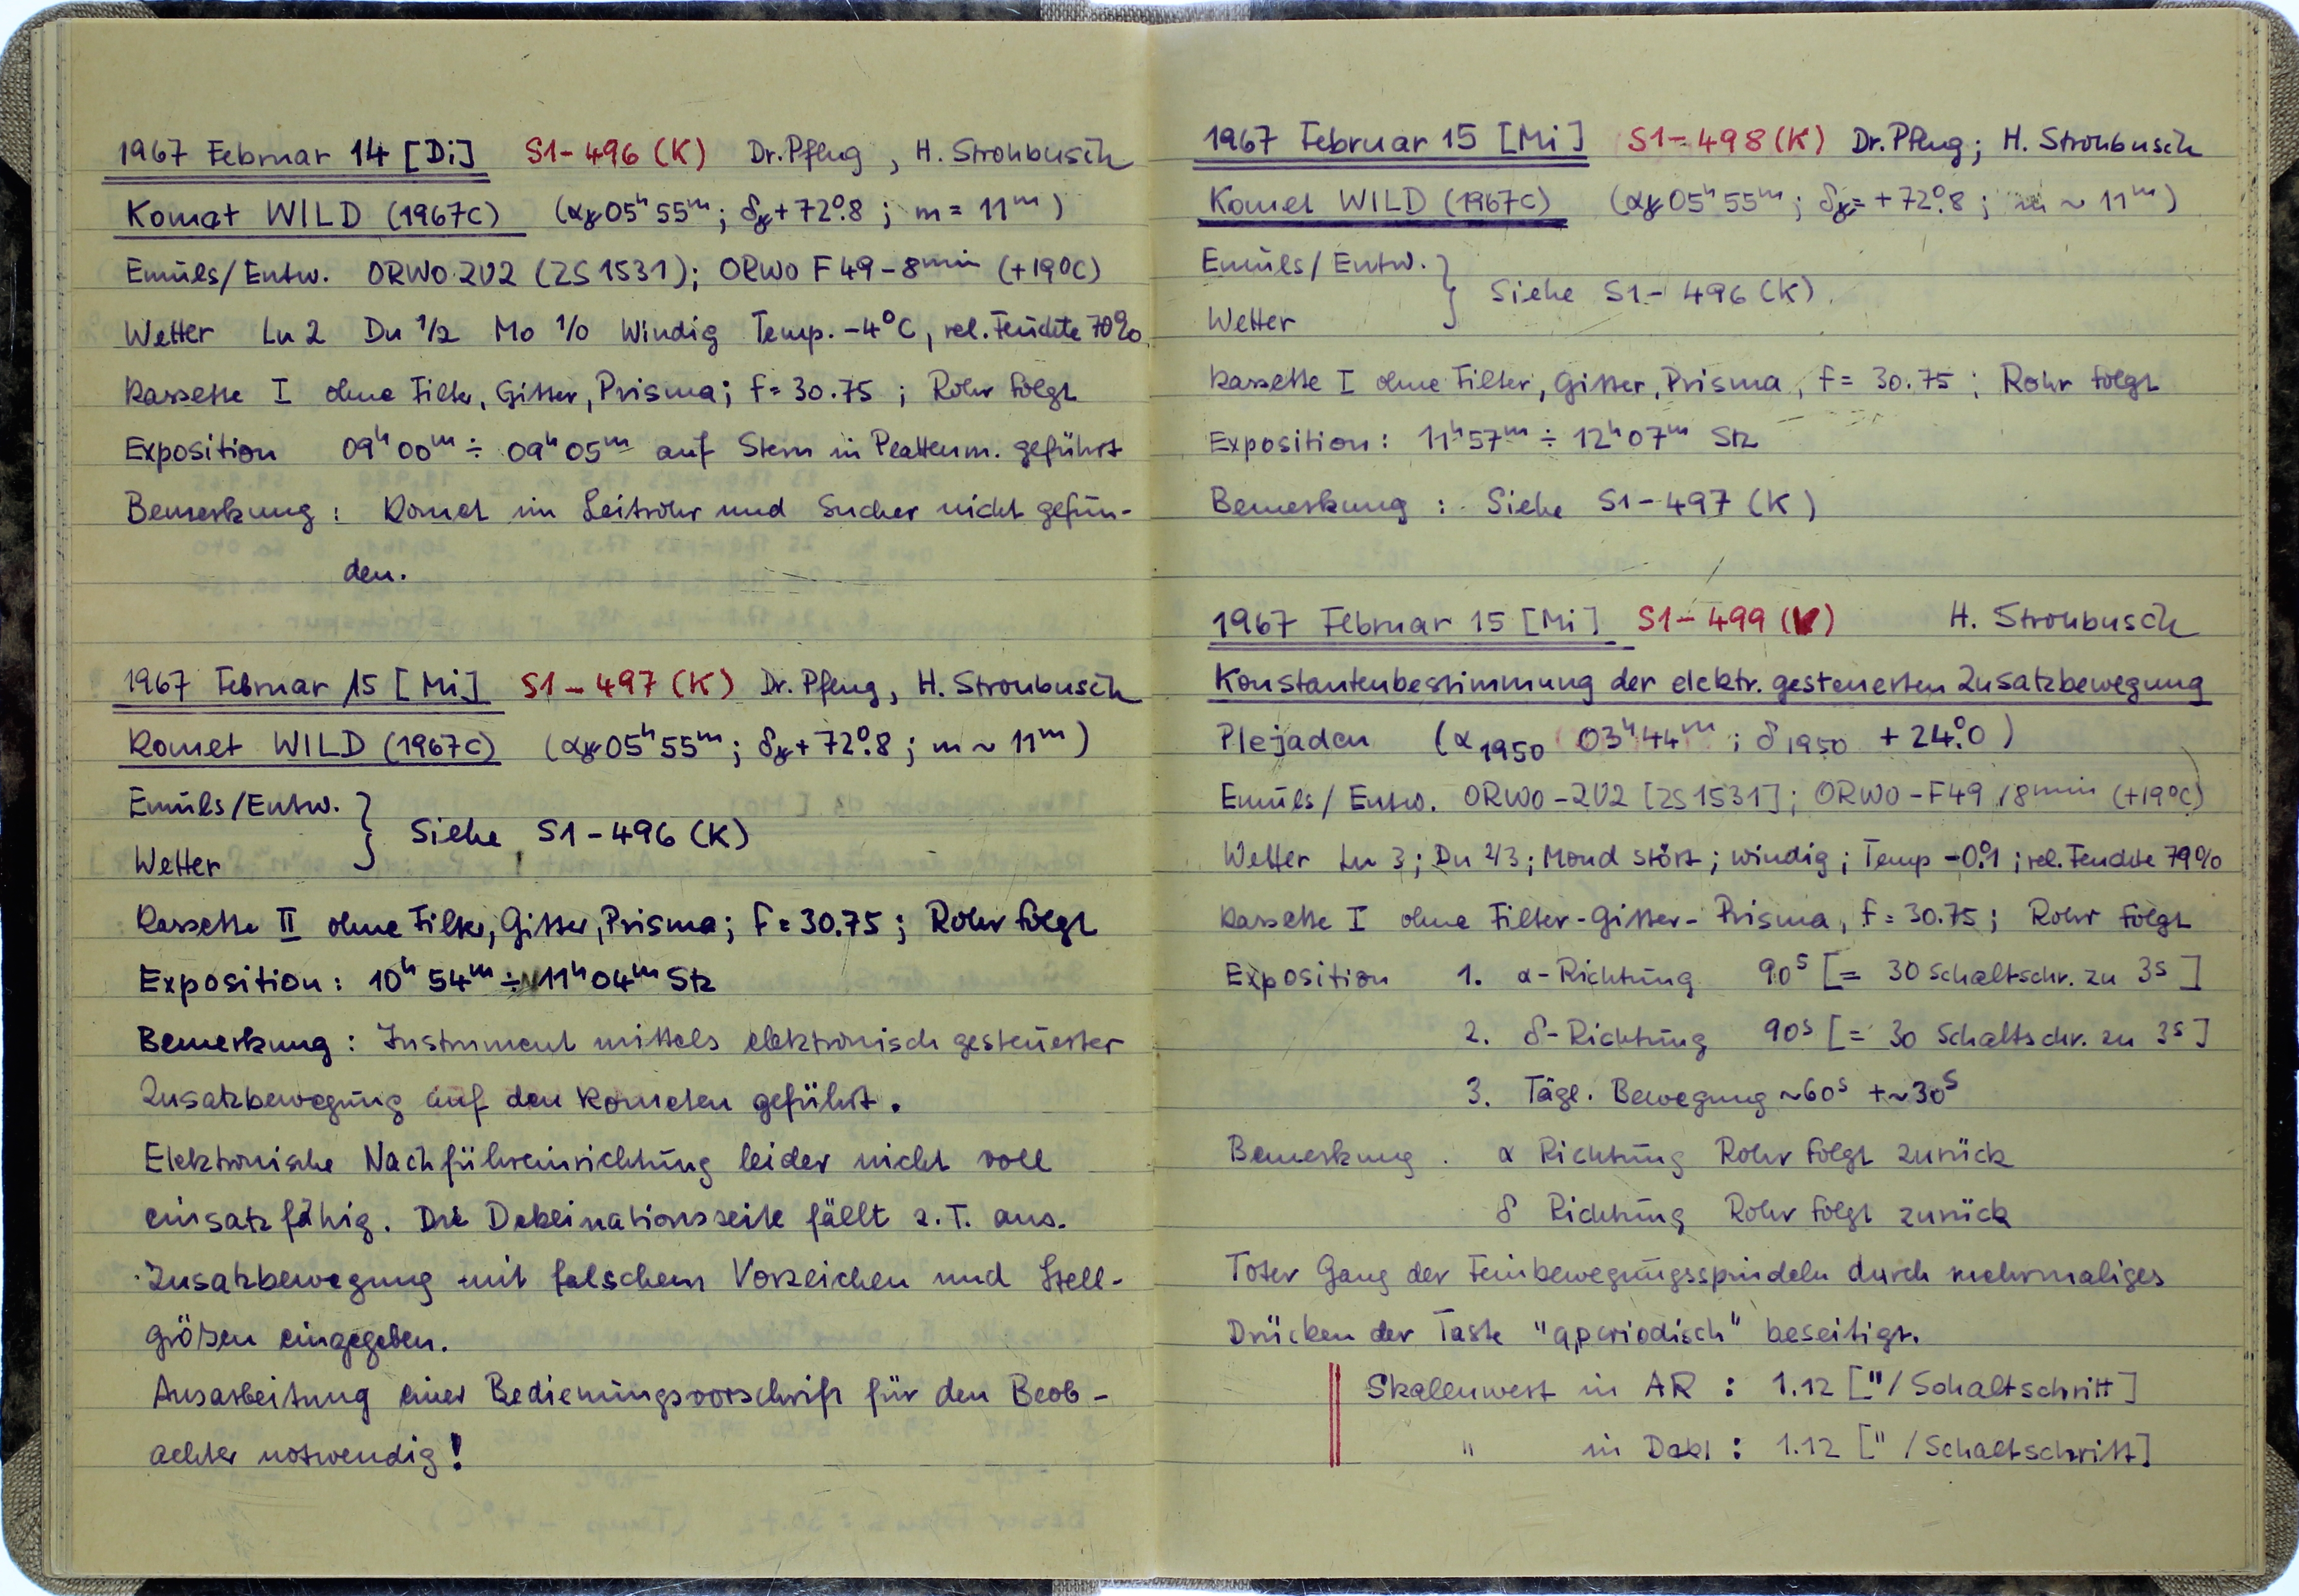 1967 Februar 14 [Di] S1-496 (K) Dr. Pflug, H. Strohbusch
Komet WILD (1967c) (α 05ʰ 55ᵐ; δ +72°.8; m = 11ᵐ)
Emuls/Entw. ORWO 2U2 (ZS 1531); ORWO F 49 - 8ᵐⁱⁿ (+19°C)
Wetter Lu 2 Du 1/2 Mo 1/0 Windig Temp. -4°C, rel. Feuchte 70%
Kassette I ohne Filter, Gitter, Prisma; f = 30.75; Rohr folgt
Exposition 09ʰ 00ᵐ ÷ 09ʰ 05ᵐ auf Stern in Plattenm. geführt
Bemerkung: Komet im Leitrohr und Sucher nicht gefun-
den.
1967 Februar 15 [Mi] S1-497 (K) Dr. Pflug, H. Strohbusch
Komet WILD (1967c) (α 05ʰ 55ᵐ; δ +72°.8; m ~ 11ᵐ)
Emuls/Entw.
Wetter } Siehe S1-496 (K)
Kassette II ohne Filter, Gitter, Prisma; f = 30.75; Rohr folgt
Exposition: 10ʰ 54ᵐ ÷ 11ʰ 04ᵐ Stz
Bemerkung: Instrument mittels elektronisch gesteuerter
Zusatzbewegung auf den Kometen geführt.
Elektronische Nachführeinrichtung leider nicht voll
einsatzfähig. Die Deklinationsseite fällt z.T. aus.
Zusatzbewegung mit falschem Vorzeichen und Stell-
größen eingegeben.
Ausarbeitung einer Bedienungsvorschrift für den Beob-
achter notwendig!
1967 Februar 15 [Mi] S1-498 (K) Dr. Pflug; H. Strohbusch
Komet WILD (1967c) (α 05ʰ 55ᵐ; δ = +72°.8; m ~ 11ᵐ)
Emuls/Entw.
Wetter } Siehe S1-496 (K)
Kassette I ohne Filter, Gitter, Prisma, f = 30.75; Rohr folgt
Exposition: 11ʰ 57ᵐ ÷ 12ʰ 07ᵐ Stz
Bemerkung: Siehe S1-497 (K)
1967 Februar 15 [Mi] S1-499 (V) H. Strohbusch
Konstantenbestimmung der elektr. gesteuerten Zusatzbewegung
Plejaden (α 1950 03ʰ 44ᵐ; δ 1950 +24°.0)
Emuls/Entw. ORWO-2U2 [ZS 1531]; ORWO-F49/8ᵐⁱⁿ (+19°C)
Wetter Lu 3; Du 2/3; Mond stört; windig; Temp -0°.1; rel. Feuchte 79%
Kassette I ohne Filter-Gitter-Prisma, f = 30.75; Rohr folgt
Exposition 1. α-Richtung 90ˢ [= 30 Schaltschr. zu 3ˢ]
2. δ-Richtung 90ˢ [= 30 Schaltschr. zu 3ˢ]
3. Tägl. Bewegung ~60ˢ + ~30ˢ
Bemerkung. α Richtung Rohr folgt zurück
δ Richtung Rohr folgt zurück
Toter Gang der Feinbewegungsspindeln durch mehrmaliges
Drücken der Taste "aperiodisch" beseitigt.
Skalenwert in AR: 1.12 ["/Schaltschritt]
" in Dekl: 1.12 ["/Schaltschritt]